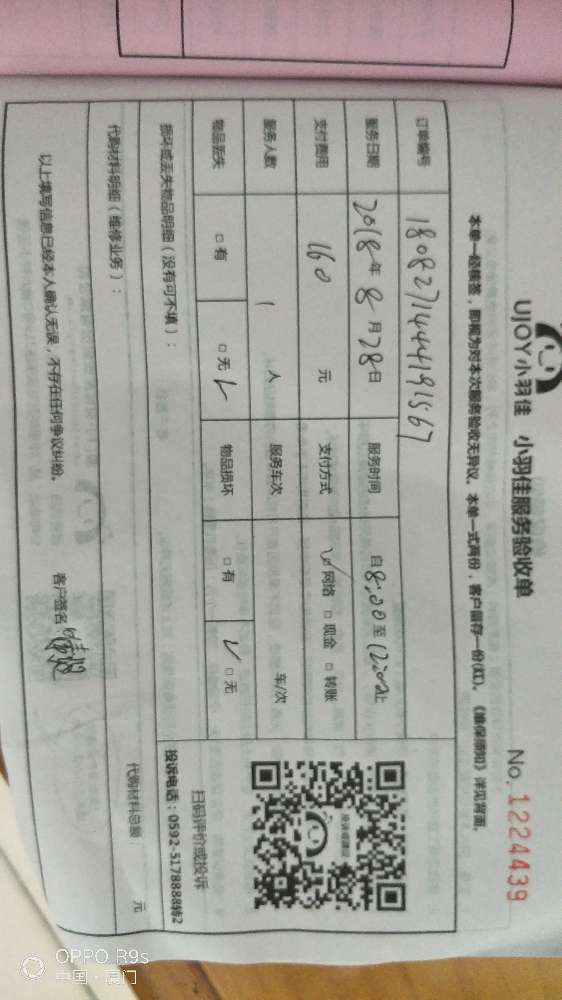 UJOY小羽佳 小羽佳服务验收单
No. 1224439
本单一经核签，即视为对本次服务验收无异议。本单一式两份，客户留存一份(红)。《维保须知》详见背面。
订单编号 1808271444191567
服务日期 2018年8月28日 服务时间 自8:00至12:00止
支付费用 160元 支付方式 ✓网络 □现金 □转账
服务人数 1人 服务车次 车/次
物品丢失 □有 □无✓ 物品损坏 □有 ✓□无
投诉或建议
扫码评价或投诉
投诉电话：0592-5178888转2
损坏或丢失物品明细（没有可不填）：
代购材料明细（维修业务）： 代购材料总额： 元
以上填写信息已经本人确认无误，不存在任何争议纠纷。 客户签名
OPPO R9s
中国·厦门